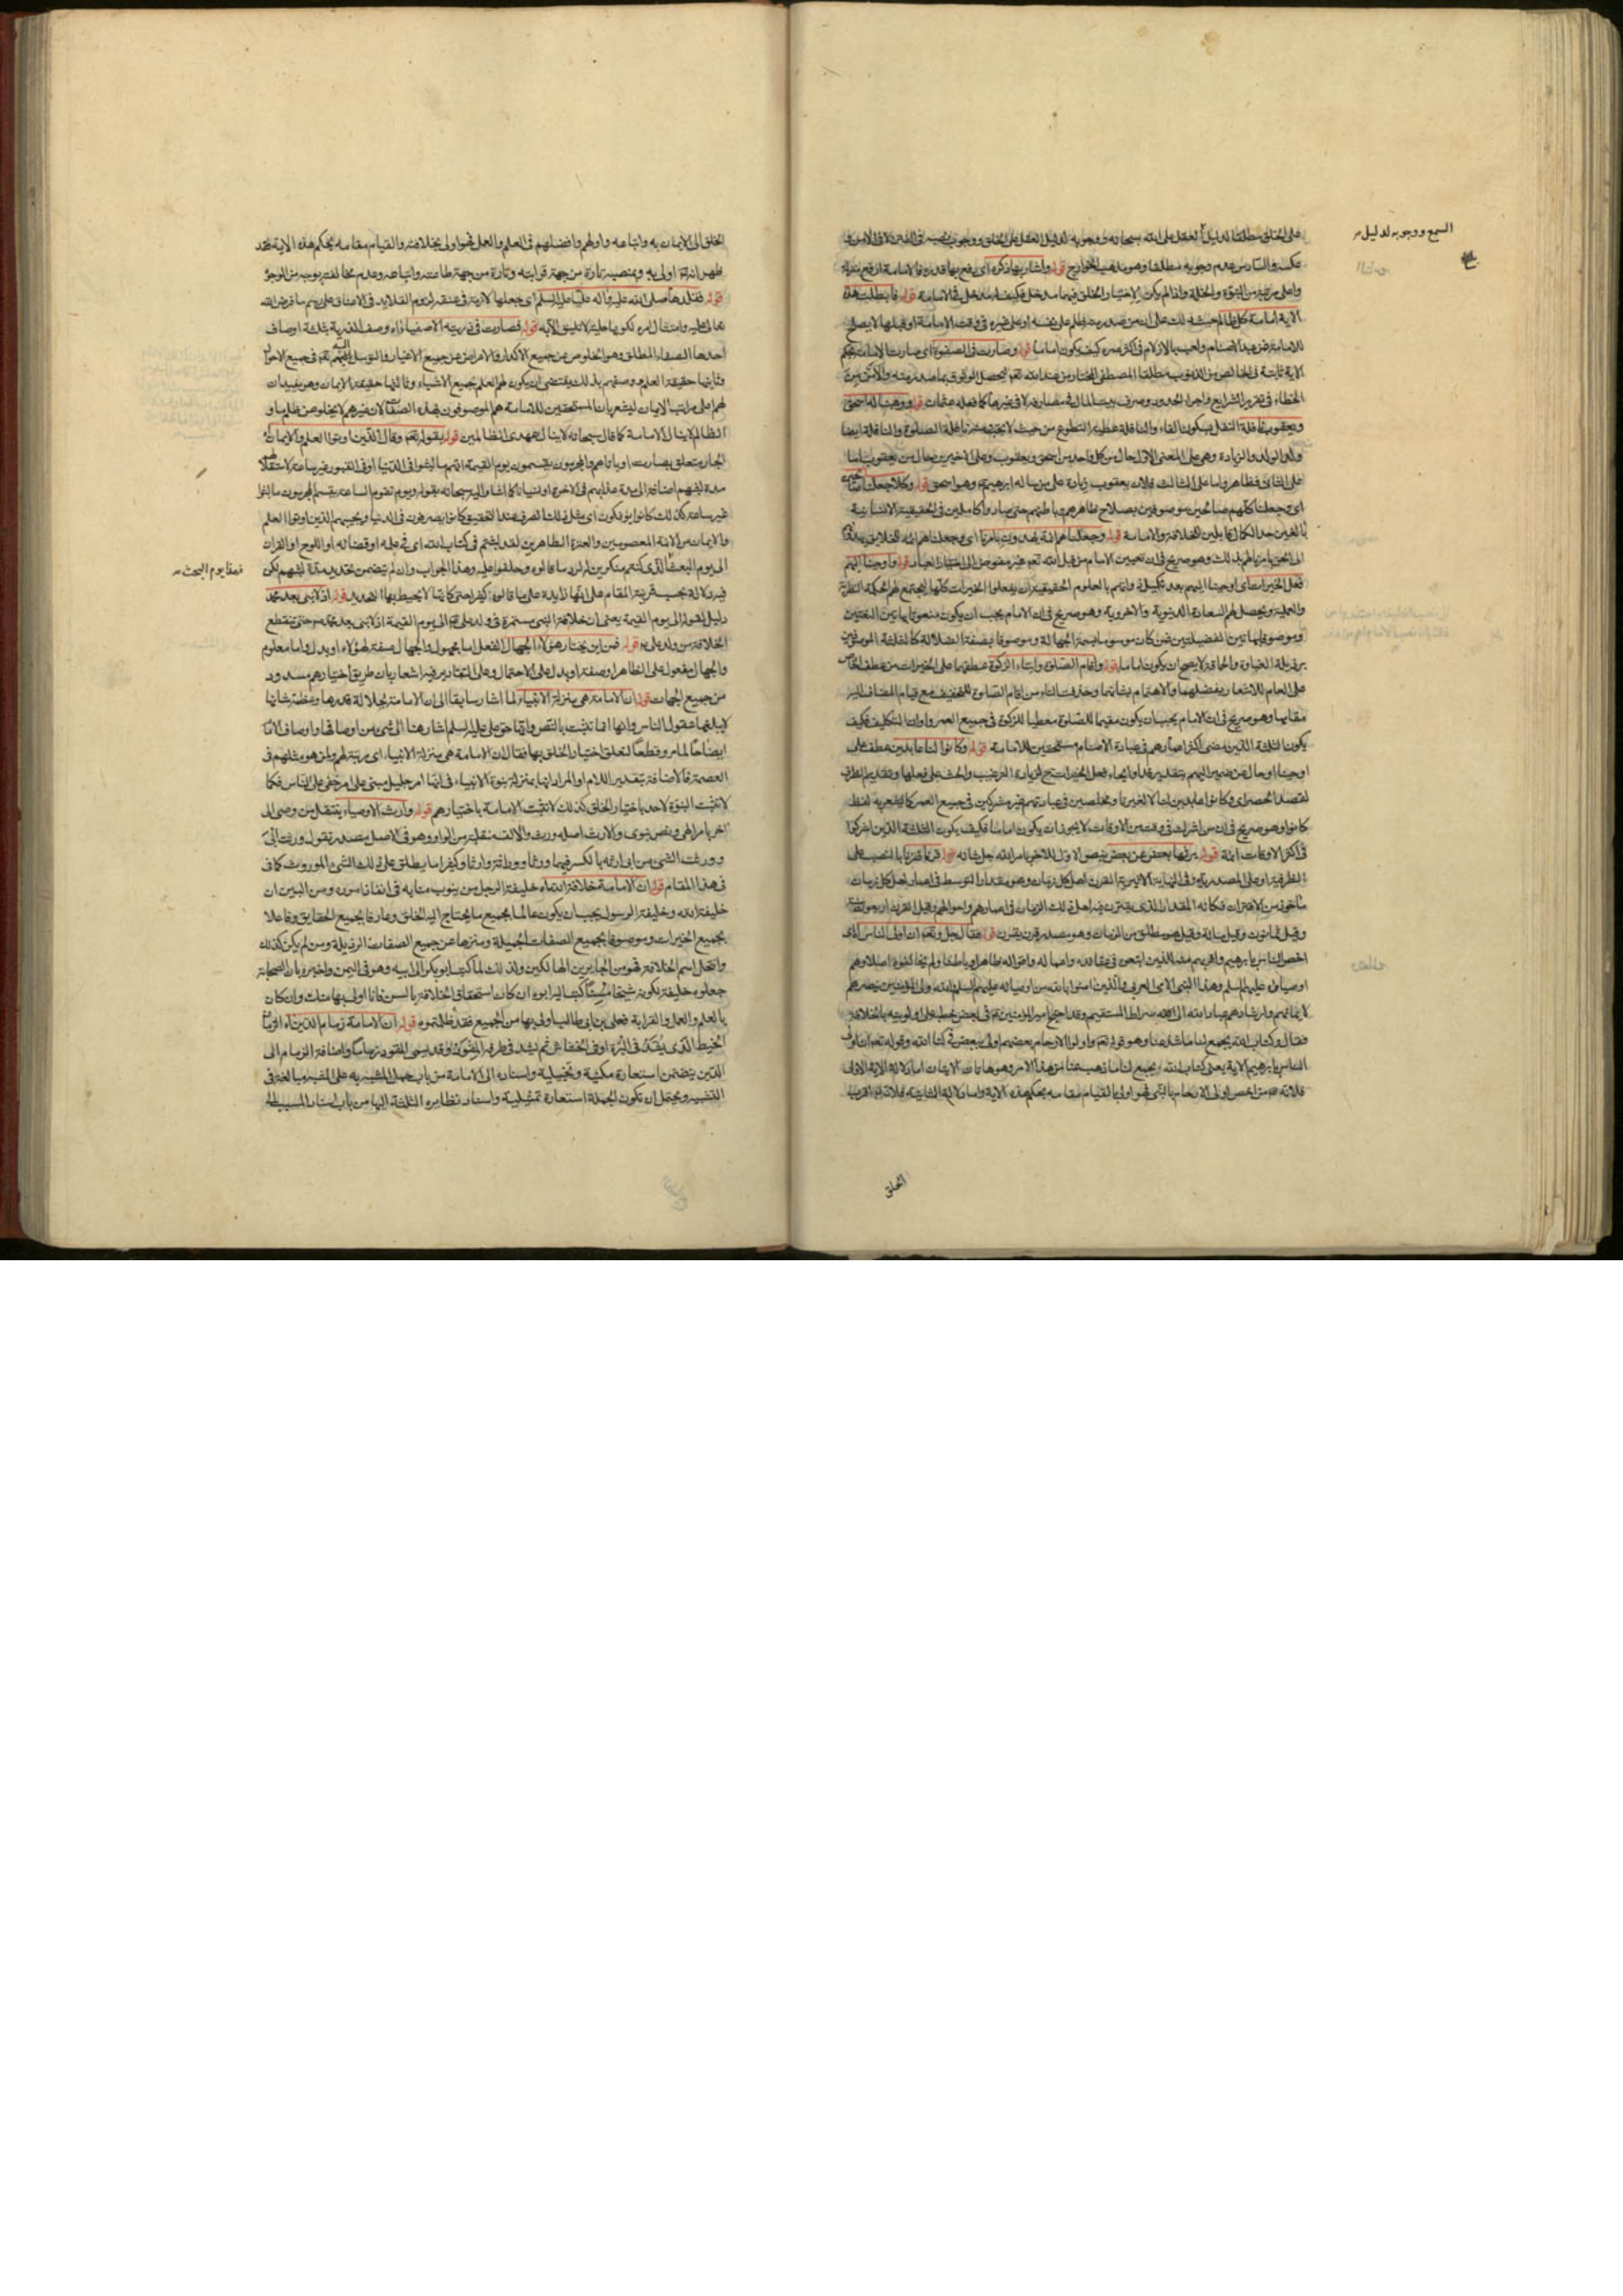 على الخلق مطلقا لدليل العقل على الله سبحانه ووجوبه لدليل العقل على الخلق ووجوب نصبه فى الفتن لا فى الامن و
عكسه والسادس عدم وجوبه مطلقا وهو مذهب الخوارج قوله واشار بها ذكره اى رفع بها قدره فالامامة ارفع منزلة
واعلى مرتبة من النبوة والخلة واذا لم يكن لاختيار الخلق فيهما مدخل فكيف له مدخل فى الامامة قوله فابطلت هذه
الاية امامة كل ظالم
للامامة
الاية ثابتة فى الخالص من الذنوب مطلقا المصطفى المختار من عند الله تعم ليحصل الوثوق بما صدر عنه والامن من
الخطاء فى تقرير الشرايع واجراء الحدود وصرف بيت المال فى مصارفه لا فى غيرها كما فعله عثمان قوله ووهبنا له اسحق
ويعقوب نافلة النفل بسكون الفاء والنافلة عطية التطوع من حيث لا تجب ومنه نافلة الصلوة والنافلة ايضا
ولد الولد والزيادة وهى على المعنى الاول حال من كل واحد من اسحق ويعقوب وعلى الاخيرين حال من يعقوب اما
على الثانى فظاهر واما على الثالث فلان يعقوب زيادة على من ساله ابرهيم وهو اسحق قوله وكلا جعلنا صالحين
اى جعلنا كلهم صالحين موصوفين بصلاح ظاهرهم وباطنهم حتى صاروا كاملين فى الحقيقة الانسانية
بالغين حد الكمال قابلين للخلافة والامامة قوله وجعلناهم ائمة يهدون بامرنا اى وجعلناهم ائمة للخلايق يهدونهم
الى الحق بامرنا لهم بذلك وهو صريح فى ان تعيين الامام من قبل الله تعم غير مفوض الى اختيار العباد قوله واوحينا اليهم
فعل الخيرات اى اوحينا اليهم بعد تكميلهم واتمهم بالعلوم الحقيقية ان يفعلوا الخيرات كلها ليجتمع لهم الحكمة النظرية
والعملية ويحصل لهم السعادة الدنيوية والاخروية وهو صريح فى ان الامام يجب ان يكون منعوتا بهاتين النعتين
وموصوفا بهاتين الفضيلتين فمن كان موسوما بسمة الجهالة وموصوفا بصفة الضلالة كالثلثة الموصوفين
برذيلة الغباوة والحماقة لا يصح ان يكون اماما قوله واقام الصلوة وايتاء الزكوة عطفهما على الخيرات من عطف الخاص
على العام للاشعار بفضلهما والاهتمام بشانهما وحذفت التاء من اقام الصلوة للتخفيف مع قيام المضاف اليه
مقامها وهو صريح فى ان الامام يجب ان يكون مقيما للصلوة معطيا للزكوة فى جميع العمر واوان التكليف فكيف
يكون الثلثة الذين مضى اكثر اعمارهم فى عبادة الاصنام مستحقين للامامة قوله وكانوا لنا عابدين عطف على
اوحينا او حال عن ضمير اليهم بتقدير قد
لقصد الحصر اى وكانوا عابدين لنا لا لغيرنا ومخلصين فى عبادتهم غير مشركين فى جميع العمر كما يشعر به لفظ
كانوا وهو صريح فى ان من اشرك فى وقت من الاوقات لا يجوز ان يكون اماما فكيف يكون الثلثة الذين اشركوا
فى اكثر الاوقات ائمة قوله يرثها بعض عن بعض بنص الاول للاخر بامر الله جل شانه قوله قرنا فقرنا بالنصب على
الظرفية او على المصدر
ماخوذ من الاقتران فكانه المقدار الذى يقترن فيه اهل ذلك الزمان فى اعمارهم واحوالهم وقيل القرن اربعون سنة
وقيل ثمانون وقيل مائة وقيل هو مطلق من الزمان وهو مصدر قرن يقرن قوله فقال جل وتعم ان اولى الناس
اخص الناس بابرهيم واقربهم منه الذين اتبعوه فى عقايده واعماله واقواله ظاهرا وباطنا ولم يخالفوه اصلا وهم
اوصياؤه عليهم السلم وهذا النبى الامى العربى والذين امنوا بالله من اوصيائه عليهم السلم والله ولى المؤمنين ينصرهم
لايمانهم وارشادهم عباد الله الى الله صراط المستقيم وقد احتج امير المؤمنين ع فى بعض خطبه على اولويته بالخلافة
فقال وكتاب الله يجمع لنا ما شذ عنا وهو قوله تعم واولوا الارحام بعضهم اولى ببعض فى كتاب الله وقوله تعم ان اولى
الناس بابرهيم الاية يعنى كتاب الله يجمع لنا ما ذهب عنا من هذا الامر وهو هاتان الايتان اما دلالة الاية الاولى
فلانه ع من اخص اولى الارحام بالنبى فهو اولى بالقيام مقامه بحكم هذه الاية واما دلالة الثانية فلانه ع اقرب
الخلق
السمع ووجوبه لدليل
الخلق الى الايمان به واتباعه واولهم وافضلهم فى العلم والعمل فهو اولى بخلافته والقيام مقامه بحكم هذه الاية فقد
ظهر انه ع اولى به وبمنصبه تارة من جهة قرابته وتارة من جهة طاعته واتباعه وعدم مخالفته بوجه من الوجوه
قوله فقلدها صلى الله عليه واله عليا عليه السلم اى جعلها لازمة فى عنقه لزوم القلايد فى الاعناق على رسم ما فرض الله
تعالى عليه وامتثال امره
احدها الصفاء المطلق وهو الخلوص من جميع الاكدار والامراض عن جميع الاغيار والتوسل اليه تعم فى جميع الاحوال
وثانيها حقيقة العلم ووصفهم بذلك يقتضى ان يكون لهم العلم بجميع الاشياء وثالثها حقيقة الايمان وهو يفيد ان
لهم اعلى مراتب الايمان ليشعر بان المستحقين للامامة هم الموصوفون بهذه الصفات لان غيرهم لا يخلو من ظلم ما و
الظالم لا ينال الامامة كما قال سبحانه لا ينال عهدى الظالمين قوله بقوله تعم وقال الذين اوتوا العلم والايمان
الجار متعلق بصارت
مدة لبثهم اضافة الى مدة عذابهم فى الاخرة او نسيانا كما اشار اليه سبحانه بقوله ويوم تقوم الساعة يقسم المجرمون ما لبثوا
غير ساعة كذلك كانوا يؤفكون اى مثل ذلك الصرف عند التحقيق كانوا يصرفون فى الدنيا ويجيبهم الذين اوتوا العلم
والايمان من الائمة المعصومين والعترة الطاهرين لقد لبثتم فى كتاب الله اى فى علمه او قضائه او اللوح او القران
الى يوم البعث الذى كنتم منكرين له
فيه دلالة بحسب قرينة المقام على انها زايدة على ما قالوه كثيرا حتى كانها لا يحيط بها التحديد قوله اذ لا نبى بعد محمد
دليل لقوله الى يوم القيمة يعنى ان خلافة النبى مستمرة فى ولد على ع الى يوم القيمة اذ لا نبى بعد محمد ص حتى ينقطع
الخلافة من ولد على ع قوله فمن اين يختار هؤلاء الجهال الفعل اما مجهول والجهال صفة لهؤلاء او بدل واما معلوم
والجهال مفعوله على الظاهر او صفة او بدل على الاحتمال وعلى التقادير فيه اشعار بان طريق اختيارهم مسدود
من جميع الجهات قوله ان الامامة هى منزلة الانبياء لما اشار سابقا الى ان الامامة بجلالة قدرها وعظمة شانها
لا يبلغها عقول الناس وانها انما تثبت بالنص وانها حق على عليه السلم اشار هنا الى شىء من اوصافها واوصاف الامام
ايضاحا لما مر وقطعا لتعلق اختيار الخلق بها فقال ان الامامة هى منزلة الانبياء اى مرتبة لهم ولمن هو مثلهم فى
العصمة فالاضافة بتقدير اللام او المراد انها بمنزلة نبوة الانبياء فى انها امر جليل مبنى على امر خفى على الناس فكما
لا تثبت النبوة لاحد باختيار الخلق كذلك لا تثبت الامامة باختيارهم قوله وارث الاوصياء ينتقل من وصى الى
اخر بامر الهى ونص نبوى والارث اصله ورث والالف منقلبة من الواو وهو فى الاصل مصدر تقول ورثت ابى
وورثت الشىء من ابى ارثه بالكسر فيهما ورثا ووراثة وارثا وكثيرا ما يطلق على ذلك الشىء الموروث كما فى
فى هذا المقام قوله ان الامامة خلافة الله خليفة الرجل من ينوب منابه فى انفاذ اموره ومن البين ان
خليفة الله وخليفة الرسول يجب ان يكون عالما بجميع ما يحتاج اليه الخلق وعارفا بجميع الحقايق وفاعلا
بجميع الخيرات وموصوفا بجميع الصفات الجميلة ومنزها عن جميع الصفات الرذيلة ومن لم يكن كذلك
وانتحل اسم الخلافة فهو من الجايرين الهالكين ولذلك لما كتب ابو بكر الى ابيه وهو فى اليمن واخبره بان الصحابة
جعلوه خليفة لكونه شيخا مسنا كتب اليه ابوه ان كان استحقاق الخلافة بالسن فانا اولى بها منك وان كان
بالعلم والعمل والقرابة فعلى بن ابى طالب اولى بها من الجميع فقد ظلمتموه قوله ان الامامة زمام الدين الزمام
الخيط الذى يشد فى البرة او فى الخشاش ثم يشد فى طرفه المقود وقد يسمى المقود زماما واضافة الزمام الى
الدين يتضمن استعارة مكنية وتخييلية واسناده الى الامامة من باب حمل المشبه به على المشبه مبالغة فى
التشبيه ويحتمل ان تكون الجملة استعارة تمثيلية واسناد نظايره الثلثة اليها من باب اسناد المسبب الى
فهذا يوم البعث